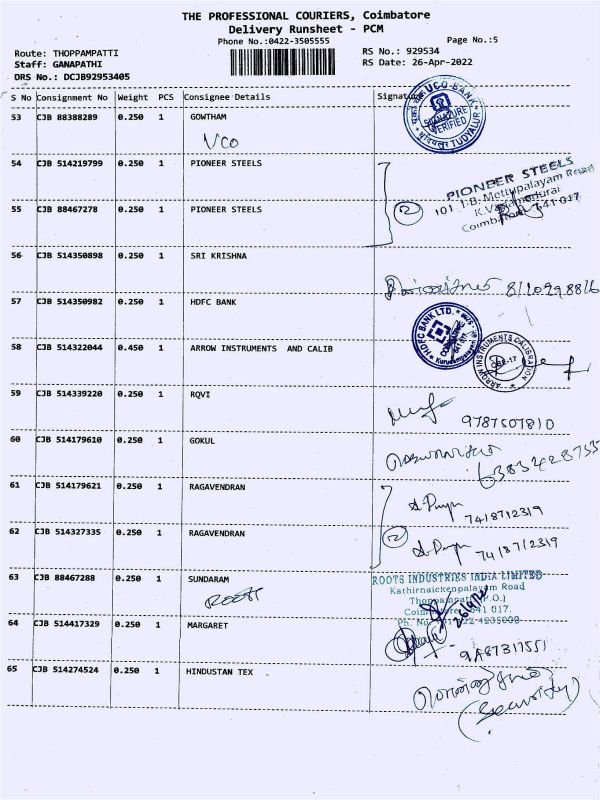 THE PROFESSIONAL COURIERS, Coimbatore
Delivery Runsheet - PCM
Phone No.:0422-3505555
Page No.:5
Route: THOPPAMPATTI
RS No.: 929534
Staff: GANAPATHI
RS Date: 26-Apr-2022
DRS No.: DCJB92953405
S No Consignment No Weight PCS Consignee Details Signature
53 CJB 88388289 0.250 1 GOWTHAM
UCO
UCO BANK
SIGNATURE VERIFIED
TUDIYALUR
54 CJB 514219799 0.250 1 PIONEER STEELS
PIONEER STEELS
101, T.B. Mettupalayam Road
55 CJB 88467278 0.250 1 PIONEER STEELS
2
641 017
56 CJB 514350898 0.250 1 SRI KRISHNA
8110998816
57 CJB 514350982 0.250 1 HDFC BANK
HDFC BANK LTD.
58 CJB 514322044 0.450 1 ARROW INSTRUMENTS AND CALIB
ARROW INSTRUMENTS CALIBRATION
CBE-17
59 CJB 514339220 0.250 1 RQVI
9787507810
60 CJB 514179610 0.250 1 GOKUL
61 CJB 514179621 0.250 1 RAGAVENDRAN
7418712319
2
62 CJB 514327335 0.250 1 RAGAVENDRAN
7418712319
63 CJB 88467288 0.250 1 SUNDARAM
ROOTS
ROOTS INDUSTRIES INDIA LIMITED
Kathirnaickenpalayam Road
64 CJB 514417329 0.250 1 MARGARET
65 CJB 514274524 0.250 1 HINDUSTAN TEX
(Security)